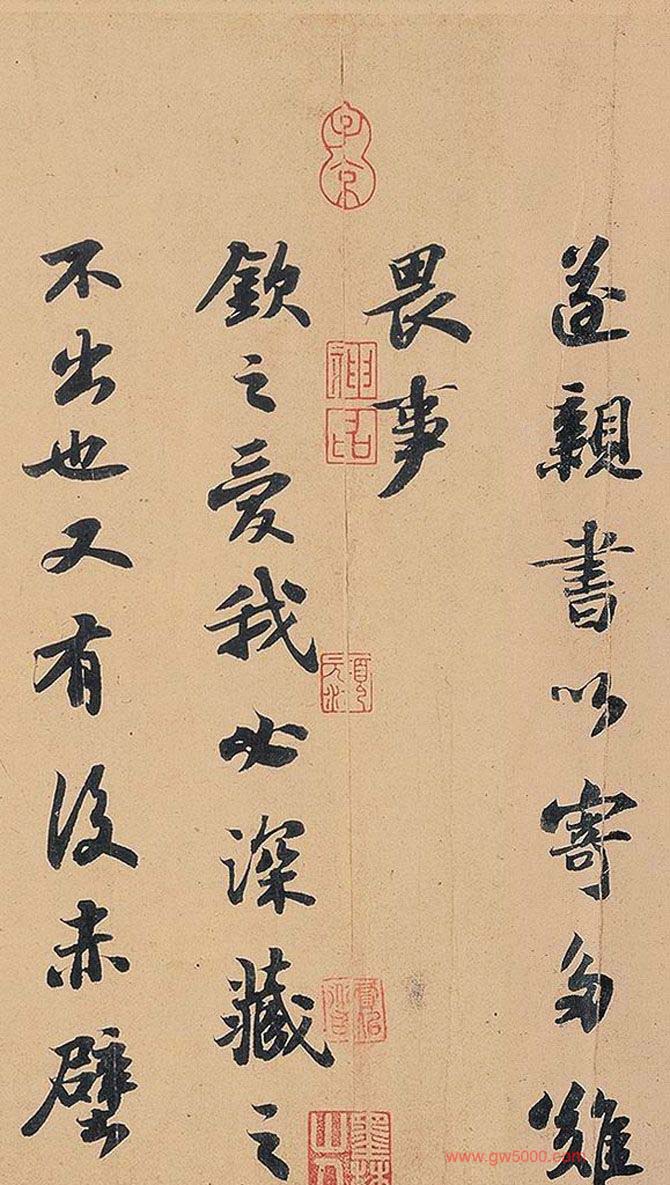 遂親書以寄多難
畏事
欽之愛我必深藏之
不出也又有後赤壁
子京
神品
www.gw5000.com